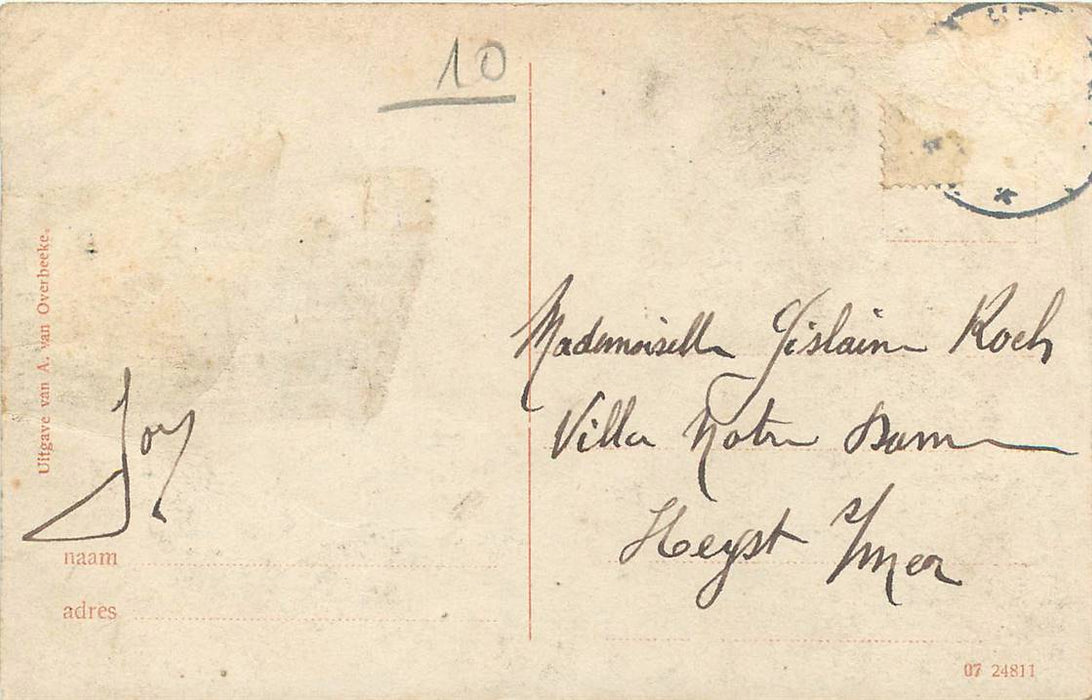 10
Uitgave van A. van Overbeeke.
Joy
naam
adres
Mademoiselle Gislaine Koch
Villa Notre Dame
Heyst s/mer
07 24811